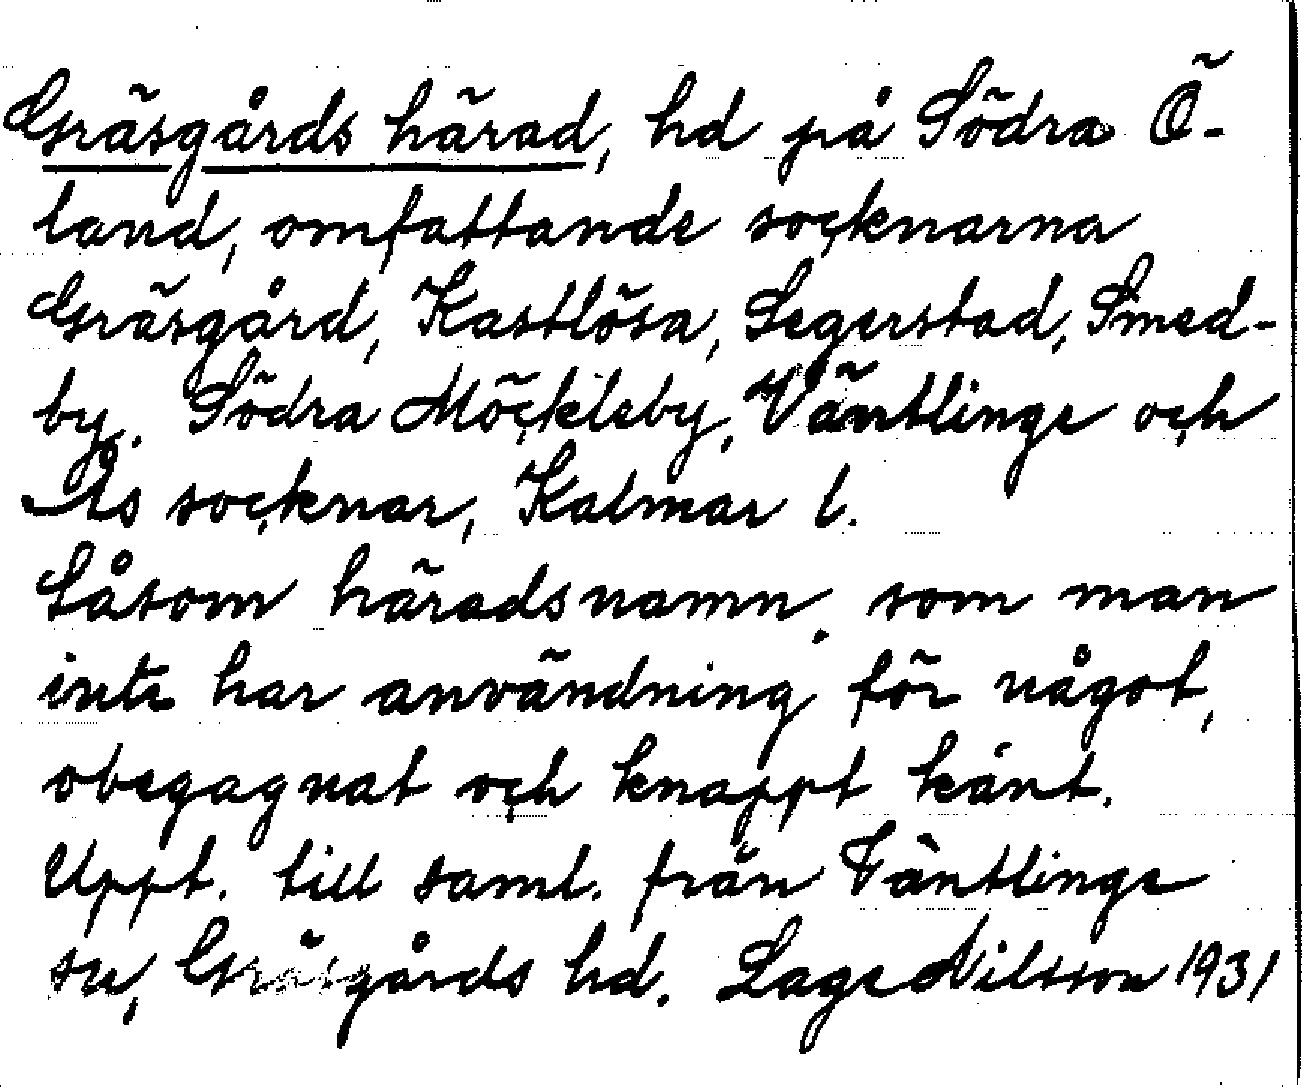 Gräsgårds härad, hd på Södra Ö-
land, omfattande socknarna
Gräsgård, Kastlösa, Segerstad, Smed-
by, Södra Möckleby, Väntlinge och
Ås socknar, Kalmar l.
Såsom häradsnamn, som man
inte har användning för något,
obegagnat och knappt känt.
Uppt. till saml. från Väntlinge
sn, Gräsgårds hd. Lage Nilsson 1931